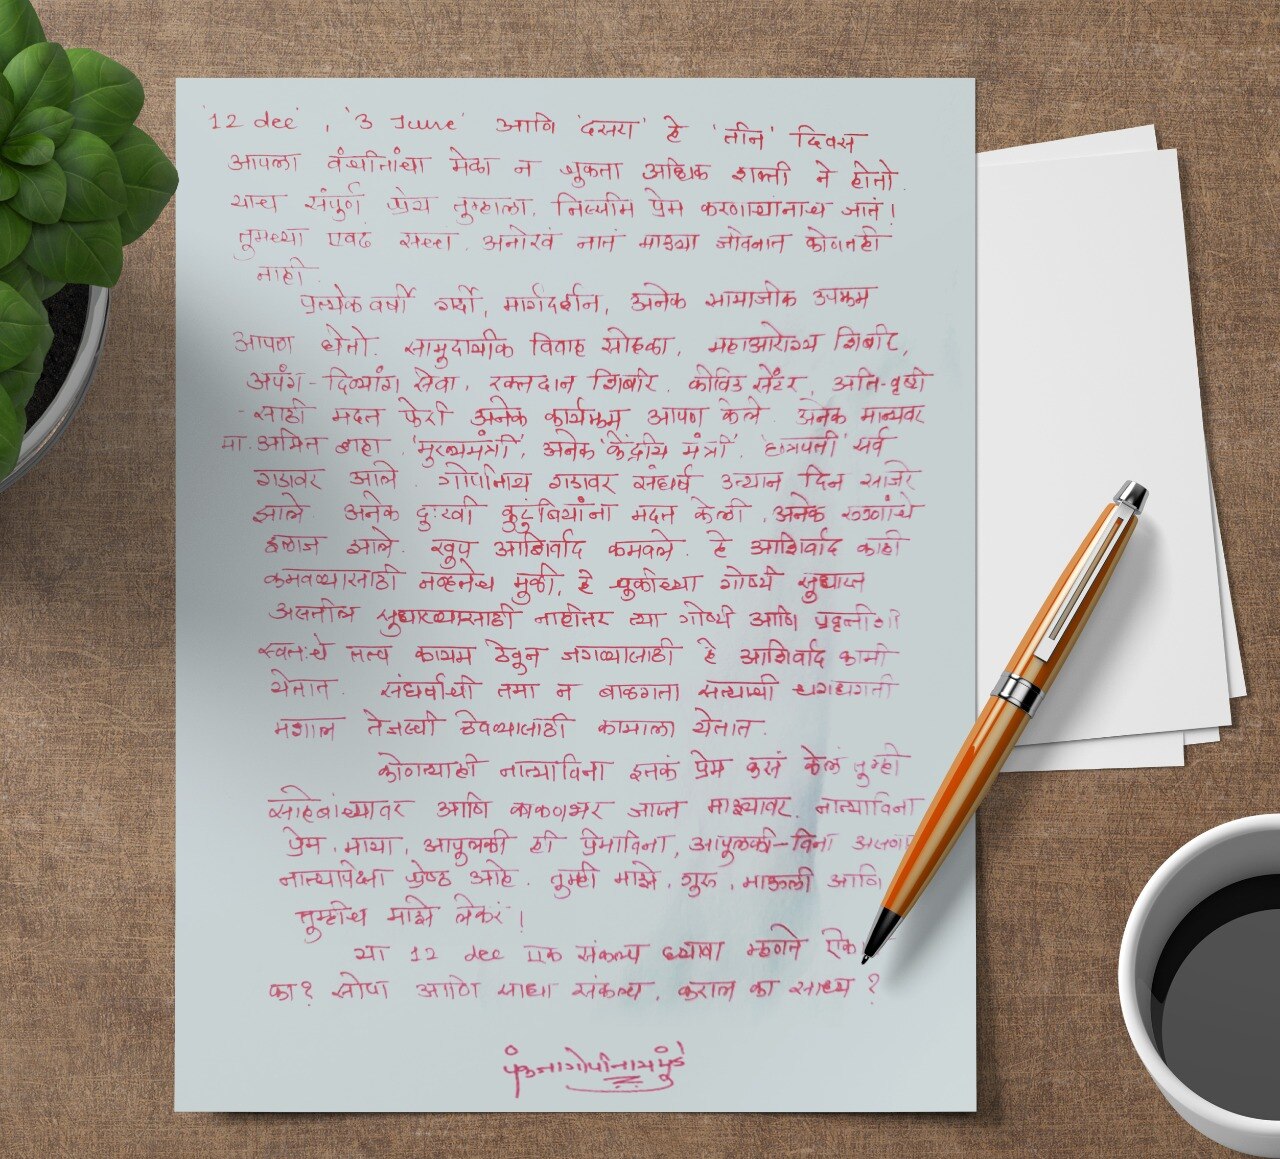 '12 dec', '3 June' आणि 'दसरा' हे 'तीन' दिवस
आपला वंचीतांचा मेळा न चुकता अधिक शक्ती ने होतो.
याच संपूर्ण श्रेय तुम्हाला, निस्सीम प्रेम करणाऱ्यानाच जातं!
तुमच्या एवढं सच्च, अनोखं नातं माझ्या जीवनात कोणतही
नाही.
प्रत्येक वर्षी गर्दी, मार्गदर्शन, अनेक सामाजीक उपक्रम
आपण घेतो. सामुदायीक विवाह सोहळा, महाआरोग्य शिबीर,
अपंग - दिव्यांग सेवा, रक्तदान शिबीर, कोविड सेंटर, अति-वृष्टी
- साठी मदत फेरी अनेक कार्यक्रम आपण केले. अनेक मान्यवर
मा. अमित शहा, 'मुख्यमंत्री', अनेक 'केंद्रीय मंत्री', 'छत्रपती' सर्व
गडावर आले. गोपीनाथ गडावर संघर्ष उत्थान दिन साजरे
झाले. अनेक दुःखी कुटुंबियांना मदत केली, अनेक रुग्णांचे
इलाज झाले. खूप आशिर्वाद कमवले. हे आशिर्वाद काही
कमवण्यासाठी नव्हतेच मुळी, हे चूकीच्या गोष्टी
असतील सुधारण्यासाठी नाहीतर त्या गोष्टी आणि प्रवृत्तीशी
स्वतःचे तत्व कायम ठेवून जगण्यासाठी हे आशिर्वाद कामी
येतात. संघर्षाची तमा न बाळगता सत्याची धगधगती
मशाल तेजस्वी ठेवण्यासाठी कामाला येतात.
कोणत्याही नात्याविना इतकं प्रेम कसं केलं तुम्ही
साहेबांच्यावर आणि काकणभर जास्त माझ्यावर. नात्याविना
प्रेम, माया, आपुलकी ही प्रेमाविना, आपुलकी-विना
नात्यापेक्षा श्रेष्ठ आहे. तुम्ही माझे, गुरु, माऊली आणि
तुम्हीच माझे लेकरं!
या 12 dec एक संकल्प घ्यावा म्हणते
का? सोपा आणि साधा संकल्प, कराल का साध्य?
पंकजा गोपीनाथ मुंडे